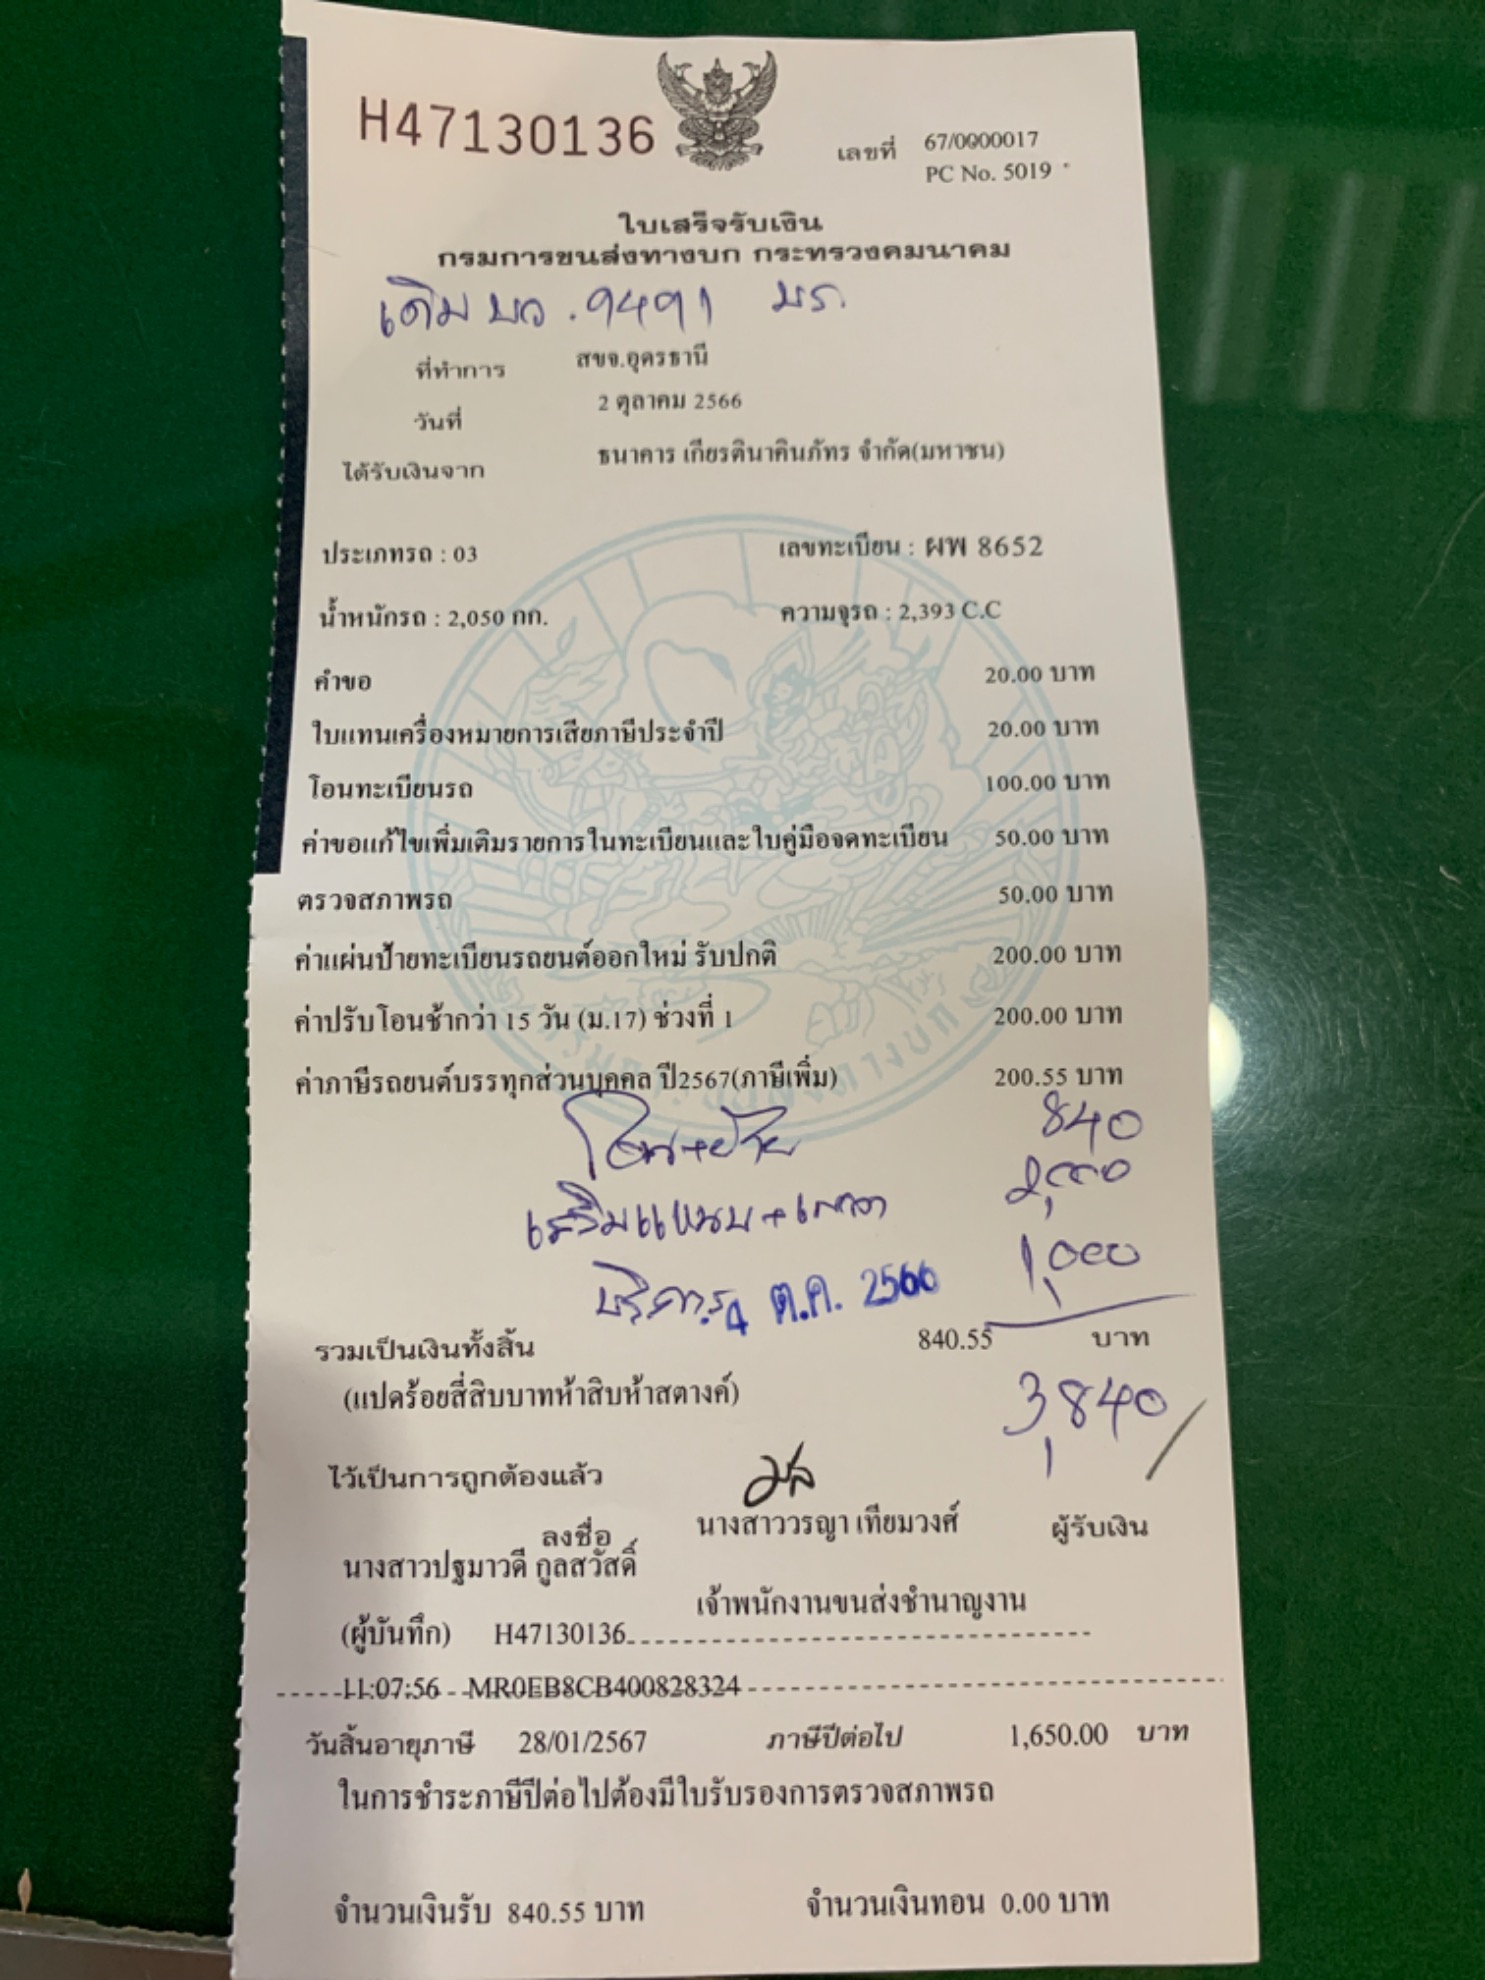 H47130136
เลขที่ 67/0000017
PC No. 5019
ใบเสร็จรับเงิน
กรมการขนส่งทางบก กระทรวงคมนาคม
เดิม บว. 9491 บร.
ที่ทำการ สขจ.อุดรธานี
วันที่ 2 ตุลาคม 2566
ได้รับเงินจาก ธนาคาร เกียรตินาคินภัทร จำกัด(มหาชน)
ประเภทรถ : 03 เลขทะเบียน : ผพ 8652
น้ำหนักรถ : 2,050 กก. ความจุรถ : 2,393 C.C
คำขอ 20.00 บาท
ใบแทนเครื่องหมายการเสียภาษีประจำปี 20.00 บาท
โอนทะเบียนรถ 100.00 บาท
ค่าขอแก้ไขเพิ่มเติมรายการในทะเบียนและใบคู่มือจดทะเบียน 50.00 บาท
ตรวจสภาพรถ 50.00 บาท
ค่าแผ่นป้ายทะเบียนรถยนต์ออกใหม่ รับปกติ 200.00 บาท
ค่าปรับโอนช้ากว่า 15 วัน (ม.17) ช่วงที่ 1 200.00 บาท
ค่าภาษีรถยนต์บรรทุกส่วนบุคคล ปี2567(ภาษีเพิ่ม) 200.55 บาท
โอน+ย้าย 840
เสริมแหนบ+ 2,000
บริการ 1,000
4 ต.ค. 2566
รวมเป็นเงินทั้งสิ้น 840.55 บาท
(แปดร้อยสี่สิบบาทห้าสิบห้าสตางค์) 3,840/
ไว้เป็นการถูกต้องแล้ว
ลงชื่อ นางสาววรญา เทียมวงศ์ ผู้รับเงิน
นางสาวปฐมาวดี กูลสวัสดิ์
เจ้าพนักงานขนส่งชำนาญงาน
(ผู้บันทึก) H47130136
11:07:56 MR0EB8CB400828324
วันสิ้นอายุภาษี 28/01/2567 ภาษีปีต่อไป 1,650.00 บาท
ในการชำระภาษีปีต่อไปต้องมีใบรับรองการตรวจสภาพรถ
จำนวนเงินรับ 840.55 บาท จำนวนเงินทอน 0.00 บาท